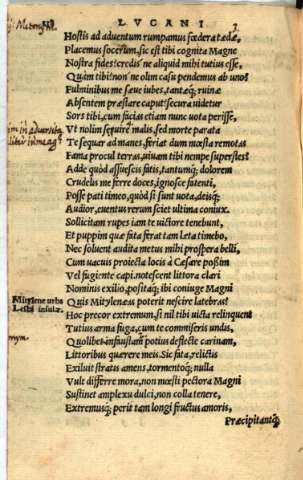 LVCANI
Hostis ad aduentum rumpamus fœdera tædæ,
Placemus socerum, sic est tibi cognita Magne
Nostra fides? credis'ne aliquid mihi tutius esse,
Quàm tibi? non'ne olim casu pendemus ab uno?
Fulminibus me sæue iubes, tantæq; ruinæ
Absentem præstare caput? secura uidetur
Sors tibi, cum facias etiam nunc uota perisse.
Vt nolim seruire malis, sed morte parata
Te sequar ad manes, feriat dum mœsta remotas
Fama procul terras, uiuam tibi nempe superstes?
Adde quòd assuescis fatis, tantumq; dolorem
Crudelis me ferre doces, ignosce fatenti,
Posse pati timeo, quòd si sunt uota, deisq;
Audior, euentus rerum sciet ultima coniux.
Sollicitam rupes iam te uictore tenebunt,
Et puppim quæ fata ferat tam læta timebo,
Nec soluent audita metus mihi prospera belli,
Cum uacuis proiecta locis à Cæsare possim
Vel fugiente capi. notescent littora clari
Nominis exilio, positaq; ibi coniuge Magni
Mitylene urbs
Lesbi insulæ.
Quis Mitylenæas poterit nescire latebras?
Hoc precor extremum, si nil tibi uicta relinquent
Tutius arma fuga, cum te commiseris undis,
Quolibet infaustam potius deflecte carinam,
Littoribus quærere meis. Sic fata, relictis
Exiluit stratis amens, tormentoq; nulla
Vult differre mora, non mœsti pectora Magni
Sustinet amplexu dulci, non colla tenere,
Extremusq; perit tam longi fructus amoris,
Præcipitantq́;